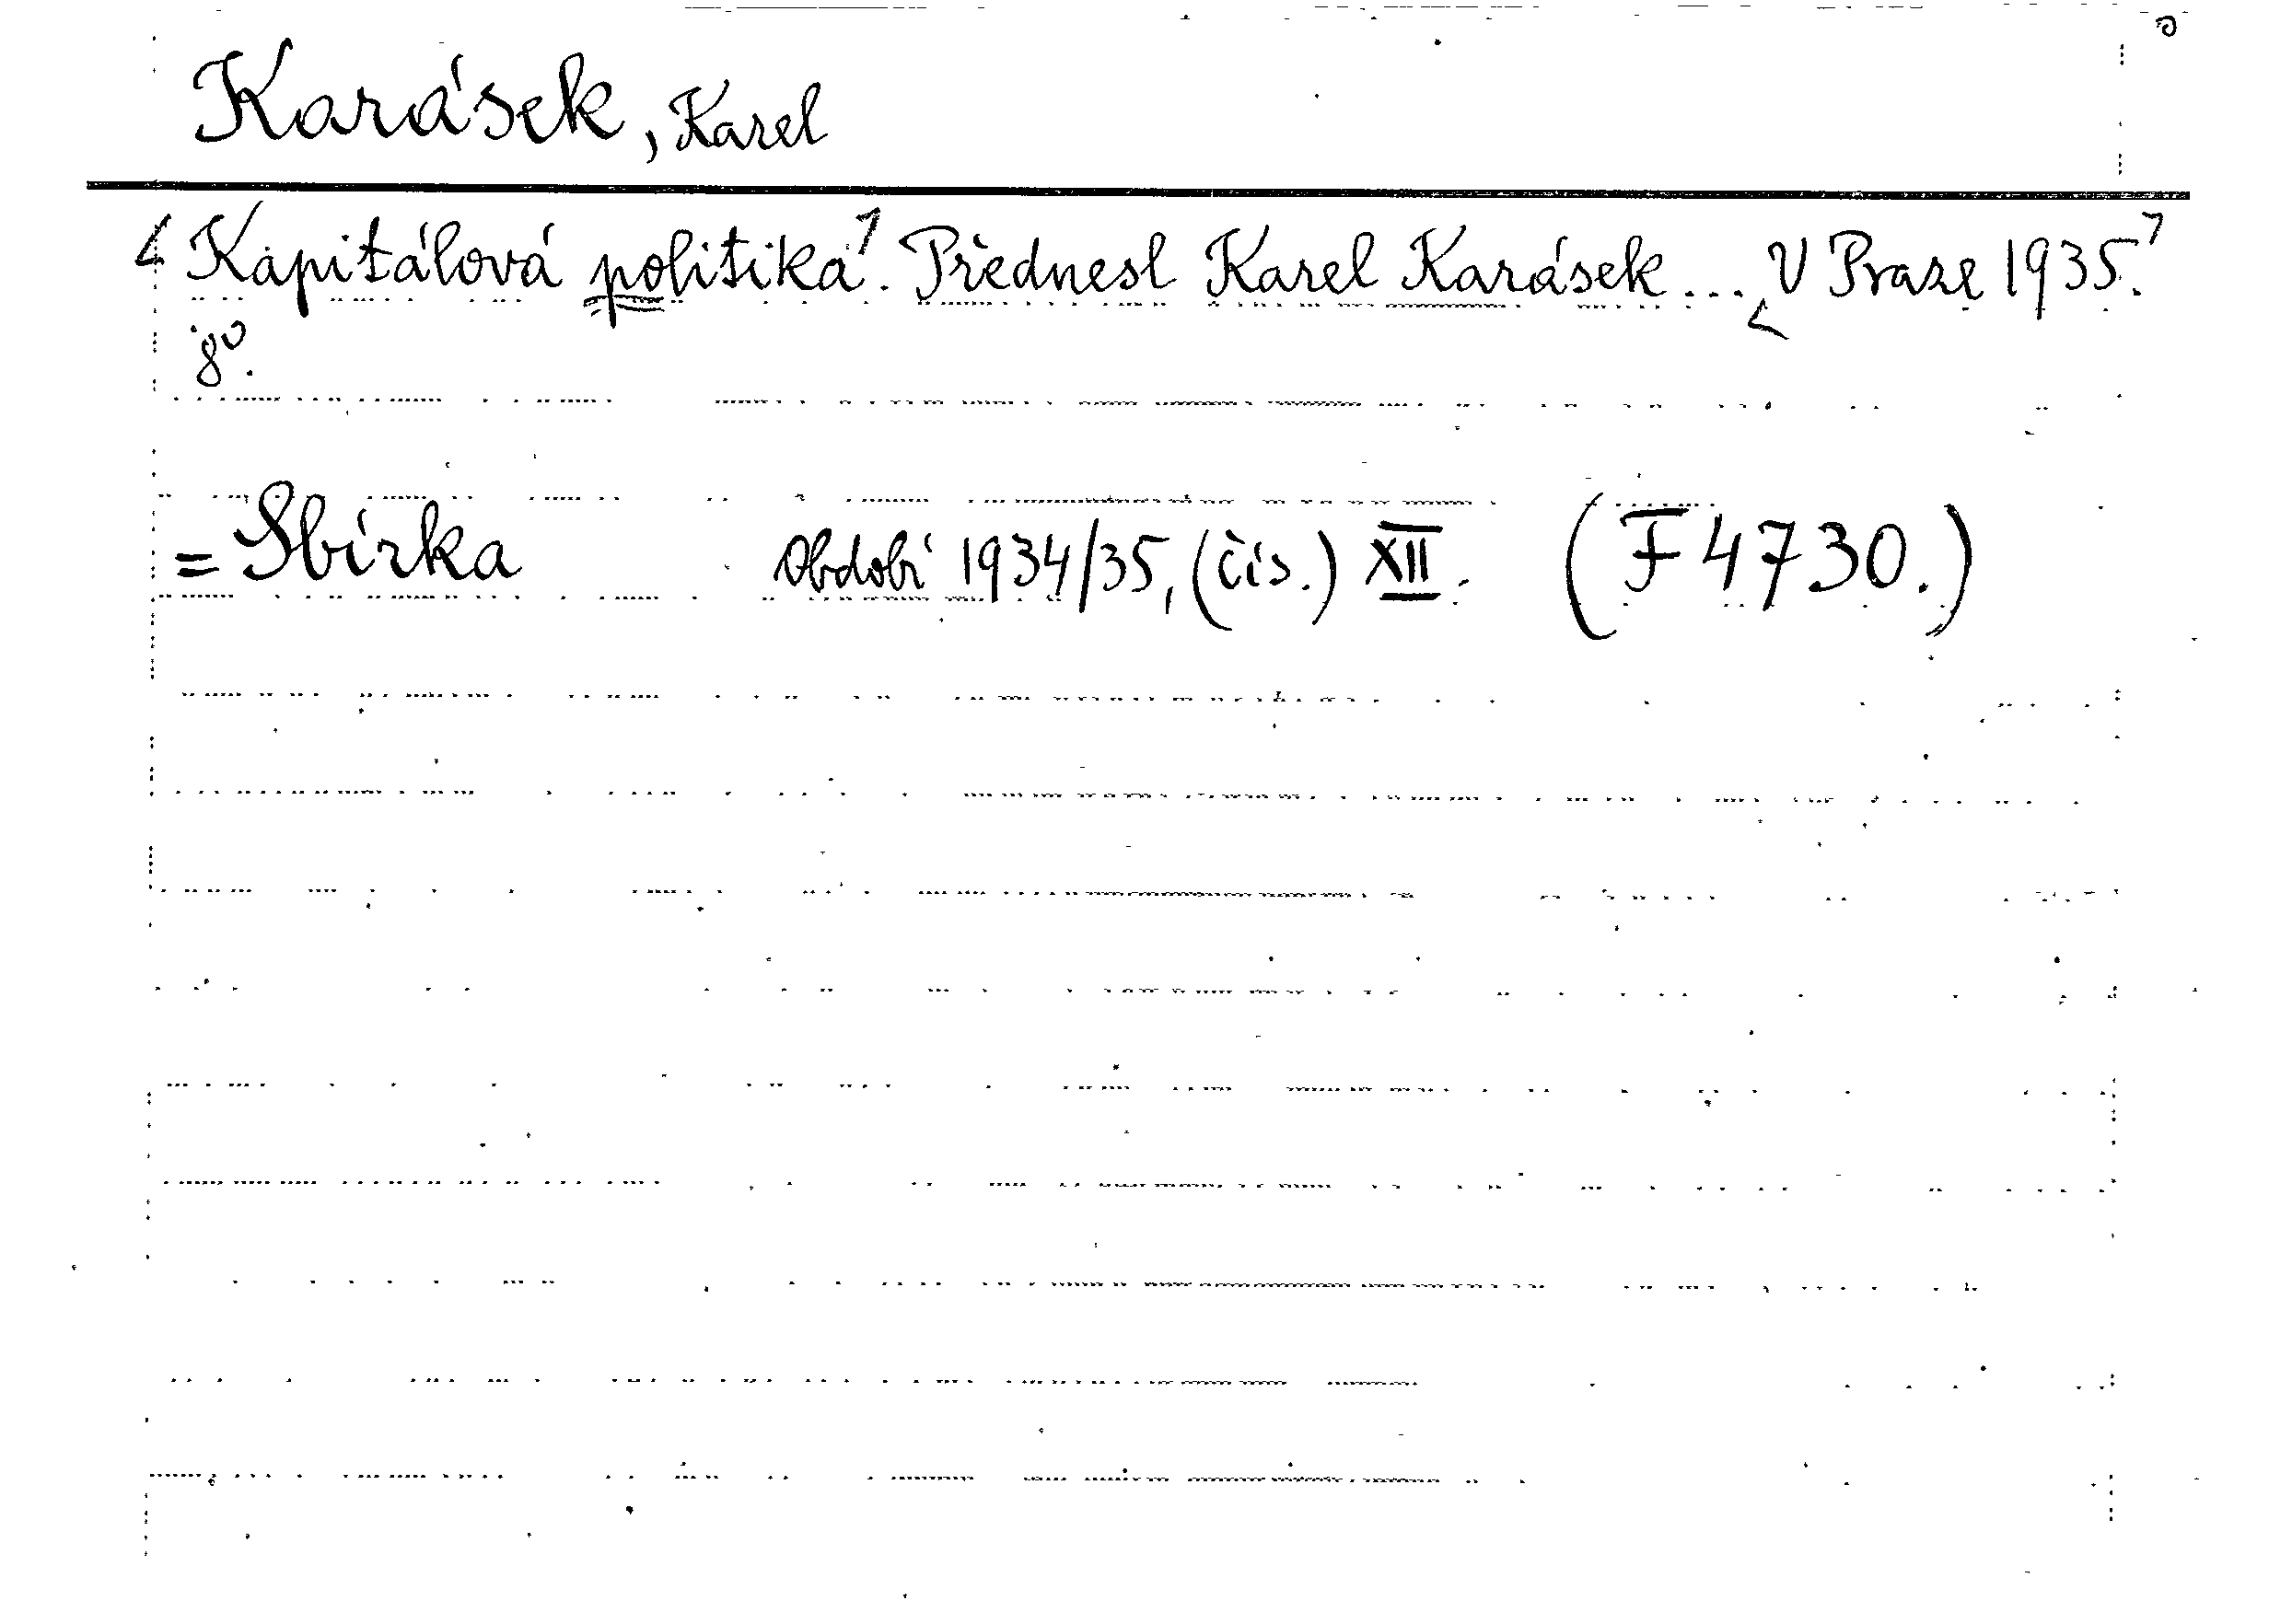 Karásek, Karel
Kapitálová politika. Přednesl Karel Karásek... V Praze 1935.
8º.
= Sbírka Období 1934/35, (čís.) XII. (F 4730.)